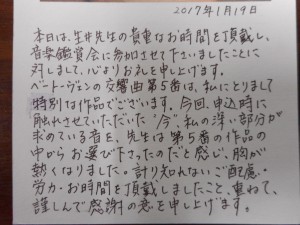 2017年1月19日
本日は、生井先生の貴重なお時間を頂戴し、
音楽鑑賞会に参加させて下さいましたことに
対しまして、心よりお礼を申し上げます。
ベートーヴェンの交響曲第5番は、私にとりまして
特別な作品でございます。今回、申込時に
触れさせていただいた"今"、私の深い部分が
求めている音を、先生は第5番の作品の
中からお選び下さったのだと感じ、胸が
熱くなりました。計り知れないご配慮・
労力・お時間を頂戴しましたこと、重ねて、
謹しんで感謝の意を申し上げます。